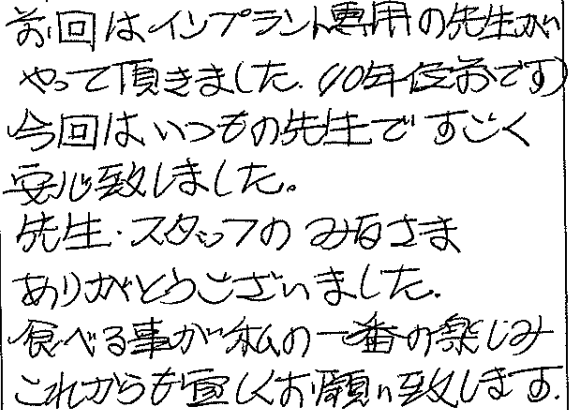 前回はインプラント専用の先生が
やって頂きました.(10年位前です)
今回はいつもの先生で すごく
安心致しました。
先生・スタッフの みなさま
ありがとうございました.
食べる事が私の一番の楽しみ
これからも宜しくお願い致します.